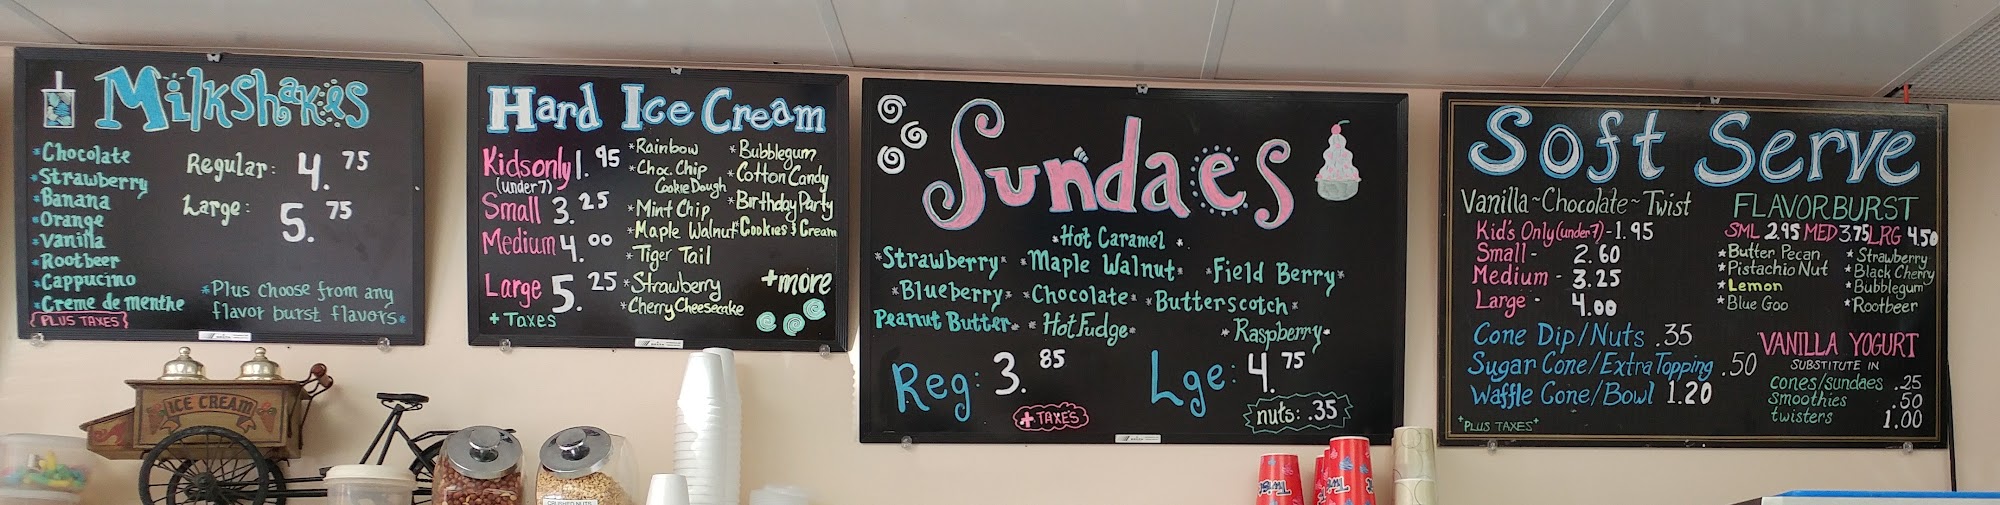 Milkshakes
*Chocolate
*Strawberry
*Banana
*Orange
*Vanilla
*Rootbeer
*Cappucino
*Creme de menthe
{PLUS TAXES}
Regular: 4.75
Large: 5.75
*Plus choose from any
flavor burst flavors*
Hard Ice Cream
Kidsonly 1.95
(under 7)
Small 3.25
Medium 4.00
Large 5.25
+ Taxes
*Rainbow
*Choc. Chip
Cookie Dough
*Mint Chip
*Maple Walnut
*Tiger Tail
*Strawberry
*Cherry Cheesecake
*Bubblegum
*Cotton Candy
*Birthday Party
*Cookies & Cream
+more
Sundaes
*Hot Caramel*
*Strawberry* *Maple Walnut* *Field Berry*
*Blueberry* *Chocolate* *Butterscotch*
Peanut Butter* *Hot Fudge* *Raspberry*
Reg: 3.85 Lge: 4.75
+ TAXES
nuts: .35
Soft Serve
Vanilla~Chocolate~Twist
Kid's Only (under 7) - 1.95
Small - 2.60
Medium - 3.25
Large - 4.00
FLAVORBURST
SML 2.95 MED 3.75 LRG 4.50
*Butter Pecan
*Pistachio Nut
*Lemon
*Blue Goo
*Strawberry
*Black Cherry
*Bubblegum
*Rootbeer
Cone Dip/Nuts .35
Sugar Cone/Extra Topping .50
Waffle Cone/Bowl 1.20
*PLUS TAXES*
VANILLA YOGURT
SUBSTITUTE IN
cones/sundaes .25
smoothies .50
twisters 1.00
ICE CREAM
CRUSHED NUTS